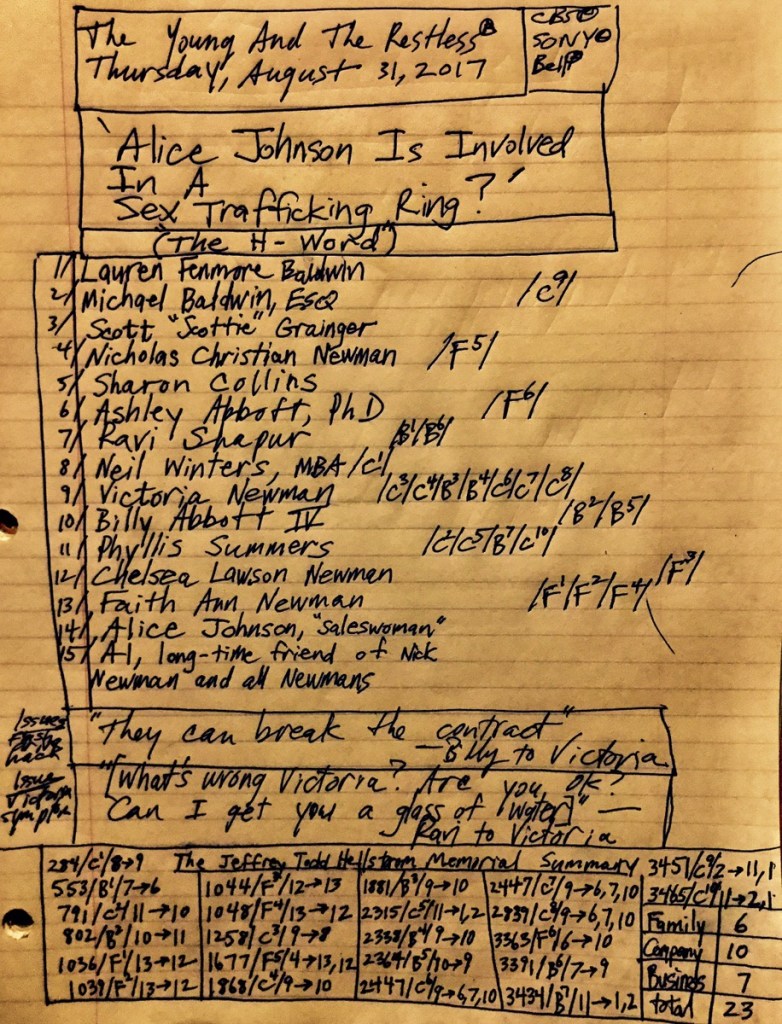 The Young And The Restless®
Thursday, August 31, 2017
CBS©
SONY©
Bell®
'Alice Johnson Is Involved
In A
Sex Trafficking Ring?'
("The H-Word")
1/ Lauren Fenmore Baldwin
2/ Michael Baldwin, ESQ /C9/
3/ Scott "Scottie" Grainger
4/ Nicholas Christian Newman /F5/
5/ Sharon Collins
6/ Ashley Abbott, PhD /F6/
7/ Ravi Shapur /B1/B6/
8/ Neil Winters, MBA /C1/
9/ Victoria Newman /C3/C4/B3/B4/C6/C7/C8/
10/ Billy Abbott IV /B2/B5/
11/ Phyllis Summers /C2/C5/B7/C10/
12/ Chelsea Lawson Newman /F3/
13/ Faith Ann Newman /F1/F2/F4/
14/ Alice Johnson, "saleswoman"
15/ Al, long-time friend of Nick
Newman and all Newmans
Issues
hack
"They can break the contract"
— Billy to Victoria
Issue
Victoria
symptom
"[What's wrong Victoria? Are you ok?
Can I get you a glass of water]" —
Ravi to Victoria
The Jeffrey Todd Hellstrom Memorial Summary
284/C1/8→9
553/B1/7→6
791/C2/11→10
802/B2/10→11
1036/F1/13→12
1039/F2/13→12
1044/F3/12→13
1048/F4/13→12
1258/C3/9→8
1677/F5/4→13,12
1868/C4/9→10
1881/B3/9→10
2315/C5/11→1,2
2338/B4/9→10
2364/B5/10→9
2447/C6/9→6,7,10
2447/C7/9→6,7,10
2839/C8/9→6,7,10
3363/F6/6→10
3391/B6/7→9
3434/B7/11→1,2
3451/C9/2→11,1
3465/C10/11→2,1
Family 6
Company 10
Business 7
total 23